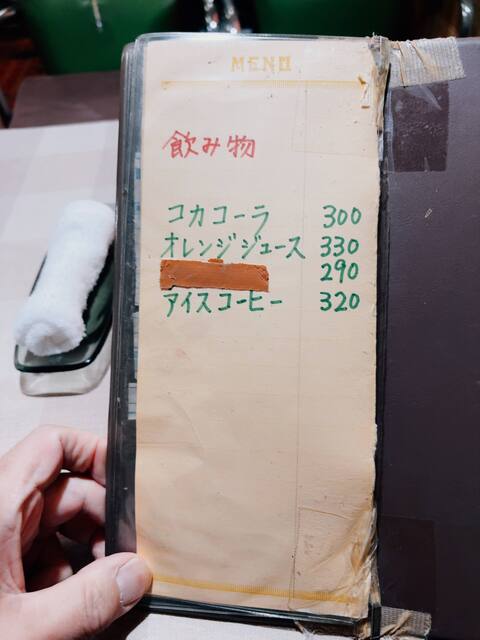 MENU
飲み物
コカコーラ 300
オレンジジュース 330
290
アイスコーヒー 320